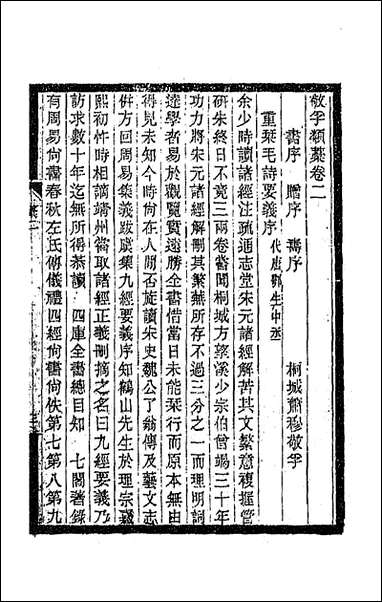 敬孚類藁卷二
書序　贈序　壽序
桐城蕭穆敬孚
重栞毛詩要義序代唐鄂生中丞
余少時讀諸經注疏通志堂宋元諸經解苦其文繁意複握管
研朱終日不竟三兩卷嘗聞桐城方望溪少宗伯曾竭三十年
功力將宋元諸經解刪其繁蕪所存不過三分之一而理明詞
達學者易於觀覽實遠勝全書惜當日未能栞行而原本無由
得見未知今時尙在人閒否旋讀宋史魏公了翁傳及藝文志
併方回周易集義跋虞集九經要義序知鶴山先生於理宗寶
熙初忤時相謫靖州嘗取諸經正義刪摘之名曰九經要義乃
訪求數十年迄無所得恭讀　四庫全書總目知　七閣著錄
有周易尙書春秋左氏傳儀禮四經尙書尙佚第七第八第九